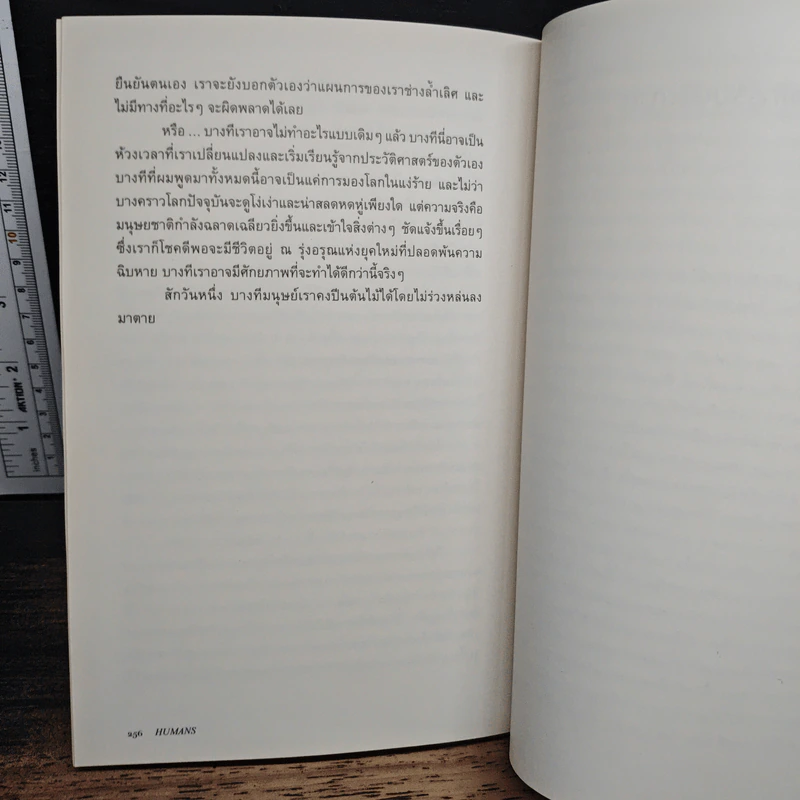 ยืนยันตนเอง เราจะยังบอกตัวเองว่าแผนการของเราช่างล้ำเลิศ และ
ไม่มีทางที่อะไรๆ จะผิดพลาดได้เลย
หรือ ... บางทีเราอาจไม่ทำอะไรแบบเดิมๆ แล้ว บางทีนี่อาจเป็น
ห้วงเวลาที่เราเปลี่ยนแปลงและเริ่มเรียนรู้จากประวัติศาสตร์ของตัวเอง
บางทีที่ผมพูดมาทั้งหมดนี้อาจเป็นแค่การมองโลกในแง่ร้าย และไม่ว่า
บางคราวโลกปัจจุบันจะดูโง่เง่าและน่าสลดหดหู่เพียงใด แต่ความจริงคือ
มนุษยชาติกำลังฉลาดเฉลียวยิ่งขึ้นและเข้าใจสิ่งต่างๆ ชัดแจ้งขึ้นเรื่อยๆ
ซึ่งเราก็โชคดีพอจะมีชีวิตอยู่ ณ รุ่งอรุณแห่งยุคใหม่ที่ปลอดพ้นความ
ฉิบหาย บางทีเราอาจมีศักยภาพที่จะทำได้ดีกว่านี้จริงๆ
สักวันหนึ่ง บางทีมนุษย์เราคงปีนต้นไม้ได้โดยไม่ร่วงหล่นลง
มาตาย
256 HUMANS
inches 1 2 3
AKTION
1 2 3 4 5 6 7 8 9 10 11 12